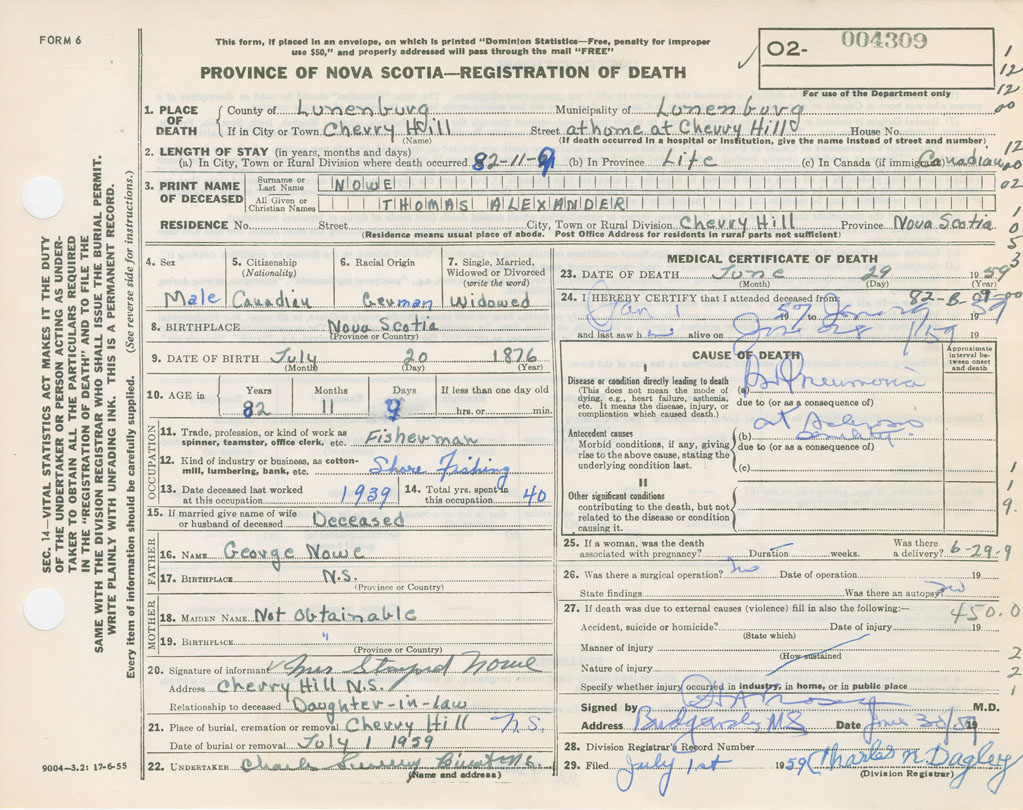 FORM 6
This form, if placed in an envelope, on which is printed "Dominion Statistics—Free, penalty for improper
use $50," and properly addressed will pass through the mail "FREE"
PROVINCE OF NOVA SCOTIA—REGISTRATION OF DEATH
O2- 004309
For use of the Department only
1. PLACE OF DEATH County of Lunenburg Municipality of Lunenburg
If in City or Town Cherry Hill Street at home at Cherry Hill House No.
(Name) (If death occurred in a hospital or institution, give the name instead of street and number)
2. LENGTH OF STAY (in years, months and days)
(a) In City, Town or Rural Division where death occurred 82-11-9 (b) In Province Life (c) In Canada (if immigrant) Canadian
3. PRINT NAME OF DECEASED Surname or Last Name NOWE
All Given or Christian Names THOMAS ALEXANDER
RESIDENCE No. Street City, Town or Rural Division Cherry Hill Province Nova Scotia
(Residence means usual place of abode. Post Office Address for residents in rural parts not sufficient)
4. Sex 5. Citizenship (Nationality) 6. Racial Origin 7. Single, Married, Widowed or Divorced (write the word)
Male Canadian German Widowed
8. BIRTHPLACE Nova Scotia
(Province or Country)
9. DATE OF BIRTH July 20 1876
(Month) (Day) (Year)
10. AGE in Years Months Days If less than one day old
82 11 9 hrs. or min.
OCCUPATION
11. Trade, profession, or kind of work as spinner, teamster, office clerk, etc. Fisherman
12. Kind of industry or business, as cotton-mill, lumbering, bank, etc. Shore Fishing
13. Date deceased last worked at this occupation 1939 14. Total yrs. spent in this occupation 40
15. If married give name of wife or husband of deceased Deceased
FATHER
16. NAME George Nowe
17. BIRTHPLACE N.S.
(Province or Country)
MOTHER
18. MAIDEN NAME Not Obtainable
19. BIRTHPLACE "
(Province or Country)
20. Signature of informant Mrs Nowe
Address Cherry Hill N.S.
Relationship to deceased Daughter-in-law
21. Place of burial, cremation or removal Cherry Hill N.S.
Date of burial or removal July 1 1959
22. UNDERTAKER
(Name and address)
9004-3.2: 17-6-55
MEDICAL CERTIFICATE OF DEATH
23. DATE OF DEATH June 29 1959
(Month) (Day) (Year)
24. I HEREBY CERTIFY that I attended deceased from: 82-B 09-00
Jan 1 19 59
and last saw h alive on June 28 1/59 19
CAUSE OF DEATH
Approximate interval between onset and death
I
Disease or condition directly leading to death
(This does not mean the mode of dying, e.g., heart failure, asthenia, etc. It means the disease, injury, or complication which caused death.)
(a) Pneumonia
due to (or as a consequence of)
Antecedent causes
Morbid conditions, if any, giving rise to the above cause, stating the underlying condition last.
(b)
due to (or as a consequence of)
(c)
II
Other significant conditions
contributing to the death, but not related to the disease or condition causing it.
25. If a woman, was the death associated with pregnancy? Duration weeks. Was there a delivery? 6-29-9
26. Was there a surgical operation? no Date of operation 19
State findings Was there an autopsy no
27. If death was due to external causes (violence) fill in also the following:— 450.0
Accident, suicide or homicide? Date of injury 19
(State which)
Manner of injury
(How sustained
Nature of injury
Specify whether injury occurred in industry, in home, or in public place
Signed by M.D.
Address Date June 30/59 19
28. Division Registrar's Record Number
29. Filed July 1st 1959 Charles N. Dagley
(Division Registrar)
1
12
12
00
12
20
02
1
0
5
3
1
1
9.
2
2
1
SEC. 14—VITAL STATISTICS ACT MAKES IT THE DUTY
OF THE UNDERTAKER OR PERSON ACTING AS UNDER-
TAKER TO OBTAIN ALL THE PARTICULARS REQUIRED
IN THE "REGISTRATION OF DEATH" AND TO FILE THE
SAME WITH THE DIVISION REGISTRAR WHO SHALL ISSUE THE BURIAL PERMIT.
WRITE PLAINLY WITH UNFADING INK. THIS IS A PERMANENT RECORD.
Every item of information should be carefully supplied. (See reverse side for instructions.)